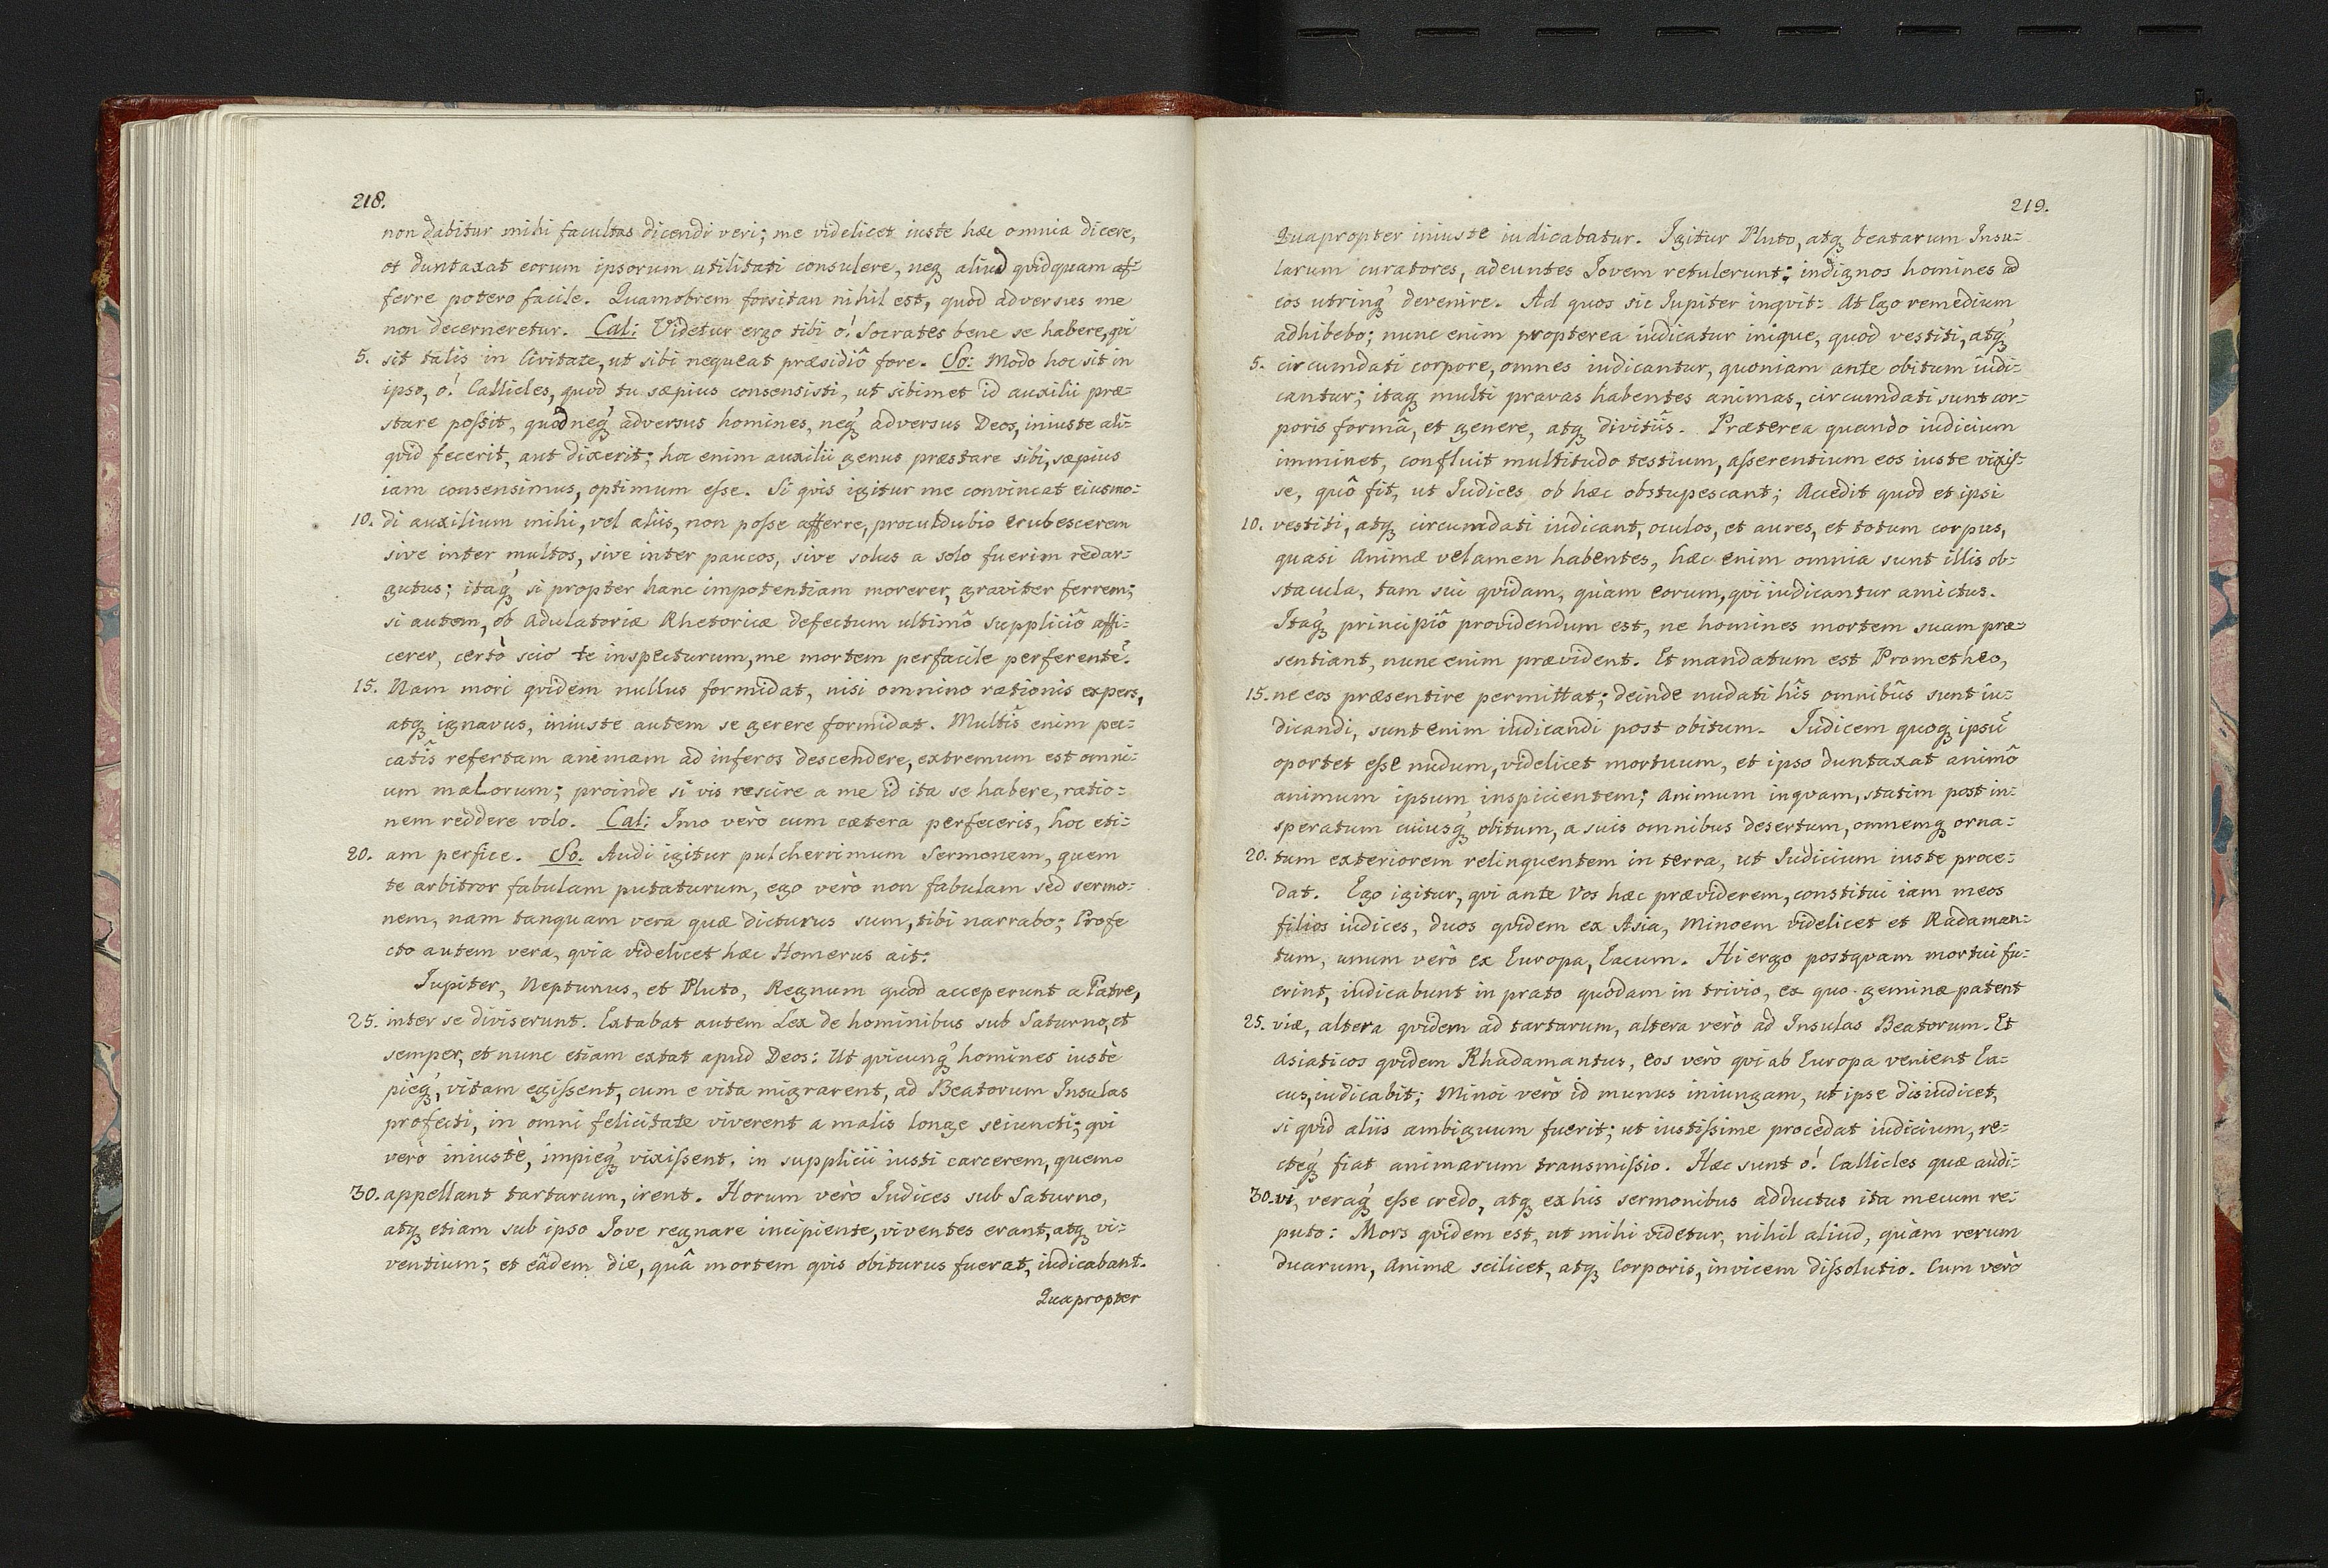 218.
non dabitur mihi facultas dicendi veri; me videlicet iuste hæc omnia dicere,
et duntaxat eorum ipsorum utilitati consulere, neq aliud quidquam af=
ferre potero facile. Quamobrem forsitan nihil est, quod adversus me
non decerneretur. Cal: Videtur ergo tibi o! Socrates bene se habere, qvi
5. sit talis in Civitate, ut sibi nequeat præsidiô fore. So: Modo hoc sit in
ipso, o! Callicles, quod tu sæpius consensisti, ut sibimet id auxilii præ=
stare poſsit, quod neq́ adversus homines, neq́ adversus Deos, iniuste ali=
qvid fecerit, aut dixerit; hoc enim auxilii genus præstare sibi, sæpius
iam consensimus, optimum eſse. Si qvis igitur me convincat eiusmo=
10. di auxilium mihi, vel aliis, non poſse afferre, proculdubio erubescerem
sive inter multos, sive inter paucos, sive solus a solo fuerim redar=
gutus; itaq́ si propter hanc impotentiam morerer, graviter ferrem;
si autem, ob adulatoriæ Rhetoricæ defectum ultimô suppliciô affi=
cerer, certò scio te inspecturum, me mortem perfacile perferentẽ.
15. Nam mori qvidem nullus formidat, nisi omnino rationis expers,
atq ignavus, iniuste autem se gerere formidat. Multîs enim pec=
catîs refertam animam ad inferos descendere, extremum est omni=
um malorum; proinde si vis rescire a me id ita se habere, ratio=
nem reddere volo. Cal: Imo verò cum cætera perfeceris, hoc eti=
20. am perfice. So. Audi igitur pulcherrimum Sermonem, quem
te arbitror fabulam putaturum, ego verò non fabulam sed sermo=
nem, nam tanquam vera quæ dicturus sum, tibi narrabo; Profe
cto autem vera, qvia videlicet hæc Homerus ait:
Iupiter, Neptunus, et Pluto, Regnum quod acceperunt a Patre,
25. inter se diviserunt. Extabat autem Lex de hominibus sub Saturno, et
semper, et nunc etiam extat apud Deos: Ut qvicunq́ homines iustè
pièq́, vitam egiſsent, cum e vita migrarent, ad Beatorum Insulas
profecti, in omni felicitate viverent a malis longe seiuncti; qvi
verò iniustè, impieq́ vixiſsent, in supplicii iusti carcerem, quem
30. appellant tartarum, irent. Horum verò Iudices sub Saturno,
atq etiam sub ipso Jove regnare incipiente, viventes erant, atq vi=
ventium; et eâdem die, quâ mortem qvis obiturus fuerat, iudicabant.
Quapropter
219.
Quapropter iniuste iudicabatur. Igitur Pluto, atq beatarum Insu=
larum curatores, adeuntes Jovem retulerunt: indignos homines ad
eos utrinq́ devenire. Ad quos sic Iupiter inqvit: At Ego remedium
adhibebo; nunc enim propterea iudicatur inique, quod vestiti, atq́
5. circumdati corpore, omnes iudicantur, quoniam ante obitum iudi=
cantur; itaq multi pravas habentes animas, circumdati sunt cor=
poris formâ, et genere, atq divitiîs. Præterea quando iudicium
imminet, confluit multitudo testium, aſserentium eos iuste vixiſ=
se, quô fit, ut Iudices ob hæc obstupescant; Accedit quod et ipsi
10. vestiti, atq circumdati iudicant, oculos, et aures, et totum corpus,
quasi Animæ velamen habentes, hæc enim omnia sunt illis ob=
stacula, tam sui qvidam, quàm eorum, qvi iudicantur amictus.
Itaq́ principiô providendum est, ne homines mortem suam præ=
sentiant, nunc enim prævident. Et mandatum est Prometheo,
15. ne eos præsentire permittat; deinde nudati hîs omnibûs sunt iu=
dicandi, sunt enim iudicandi post obitum. Iudicem quoq ipsũ
oportet eſse nudum, videlicet mortuum, et ipso duntaxat animô
animum ipsum inspicientem; Animum inqvam, statim post in=
speratum cuiusq́ obitum, a suis omnibus desertum, omnemq orna=
20. tum exteriorem relinquentem in terra, ut Iudicium iuste proce=
dat. Ego igitur, qvi ante Vos hæc præviderem, constitui iam meos
filios iudices, duos qvidem ex Asia, Minoem videlicet et Radaman=
tum, unum verò ex Europa, Eacum. Hi ergo postqvam mortui fu=
erint, iudicabunt in prato quodam in trivio, ex quo geminæ patent
25. viæ, altera qvidem ad tartarum, altera verò ad Insulas Beatorum. Et
Asiaticos qvidem Rhadamantus, eos verò qvi ab Europa venient Ea=
cus, iudicabit; Minoi verò id munus iniungam, ut ipse disiudicet,
si qvid aliis ambiguum fuerit; ut iustiſsime procedat iudicium, re=
cteq́ fiat animarum transmiſsio. Hæc sunt o! Callicles quæ audi=
30. vi, veraq́ eſse credo, atq ex his sermonibus adductus ita mecum re=
puto: Mors qvidem est, ut mihi videtur, nihil aliud, quàm rerum
duarum, Animæ scilicet, atq Corporis, invicem diſsolutio. Cum verò